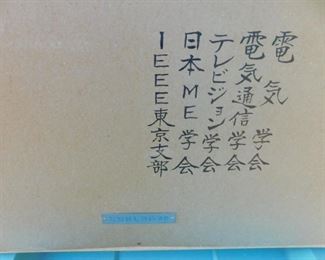 電気学会
電気通信学会
テレビジョン学会
日本ME学会
IEEE東京支部